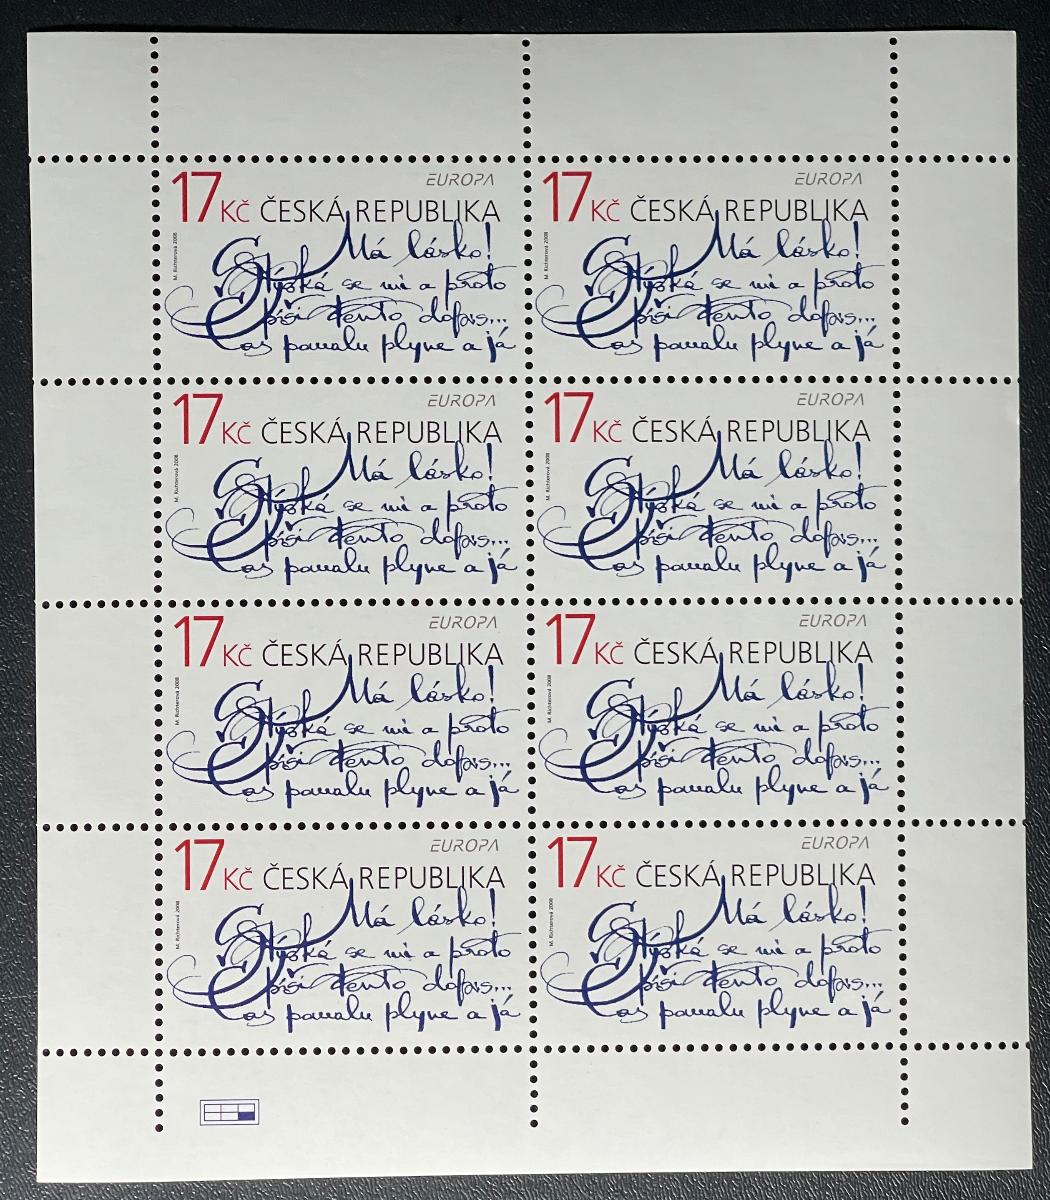 EUROPA
17 Kč ČESKÁ REPUBLIKA
M. Richterová 2008
Má lásko!
Stýská se mi a proto
píši tento dopis...
Čas pomalu plyne a já
EUROPA
17 Kč ČESKÁ REPUBLIKA
M. Richterová 2008
Má lásko!
Stýská se mi a proto
píši tento dopis...
Čas pomalu plyne a já
EUROPA
17 Kč ČESKÁ REPUBLIKA
M. Richterová 2008
Má lásko!
Stýská se mi a proto
píši tento dopis...
Čas pomalu plyne a já
EUROPA
17 Kč ČESKÁ REPUBLIKA
M. Richterová 2008
Má lásko!
Stýská se mi a proto
píši tento dopis...
Čas pomalu plyne a já
EUROPA
17 Kč ČESKÁ REPUBLIKA
M. Richterová 2008
Má lásko!
Stýská se mi a proto
píši tento dopis...
Čas pomalu plyne a já
EUROPA
17 Kč ČESKÁ REPUBLIKA
M. Richterová 2008
Má lásko!
Stýská se mi a proto
píši tento dopis...
Čas pomalu plyne a já
EUROPA
17 Kč ČESKÁ REPUBLIKA
M. Richterová 2008
Má lásko!
Stýská se mi a proto
píši tento dopis...
Čas pomalu plyne a já
EUROPA
17 Kč ČESKÁ REPUBLIKA
M. Richterová 2008
Má lásko!
Stýská se mi a proto
píši tento dopis...
Čas pomalu plyne a já